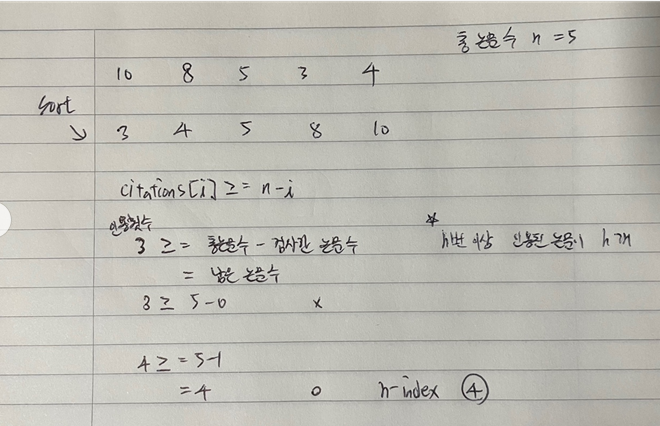 총 논문수 n = 5
10 8 5 3 4
Sort
↘ 3 4 5 8 10
citations[i] >= n-i
인용횟수
3 >= 총논문수 - 검사한 논문수
* h번 이상 인용된 논문이 h개
= 남은 논문수
3 ≥ 5-0 x
4 >= 5-1
= 4 o h-index ④